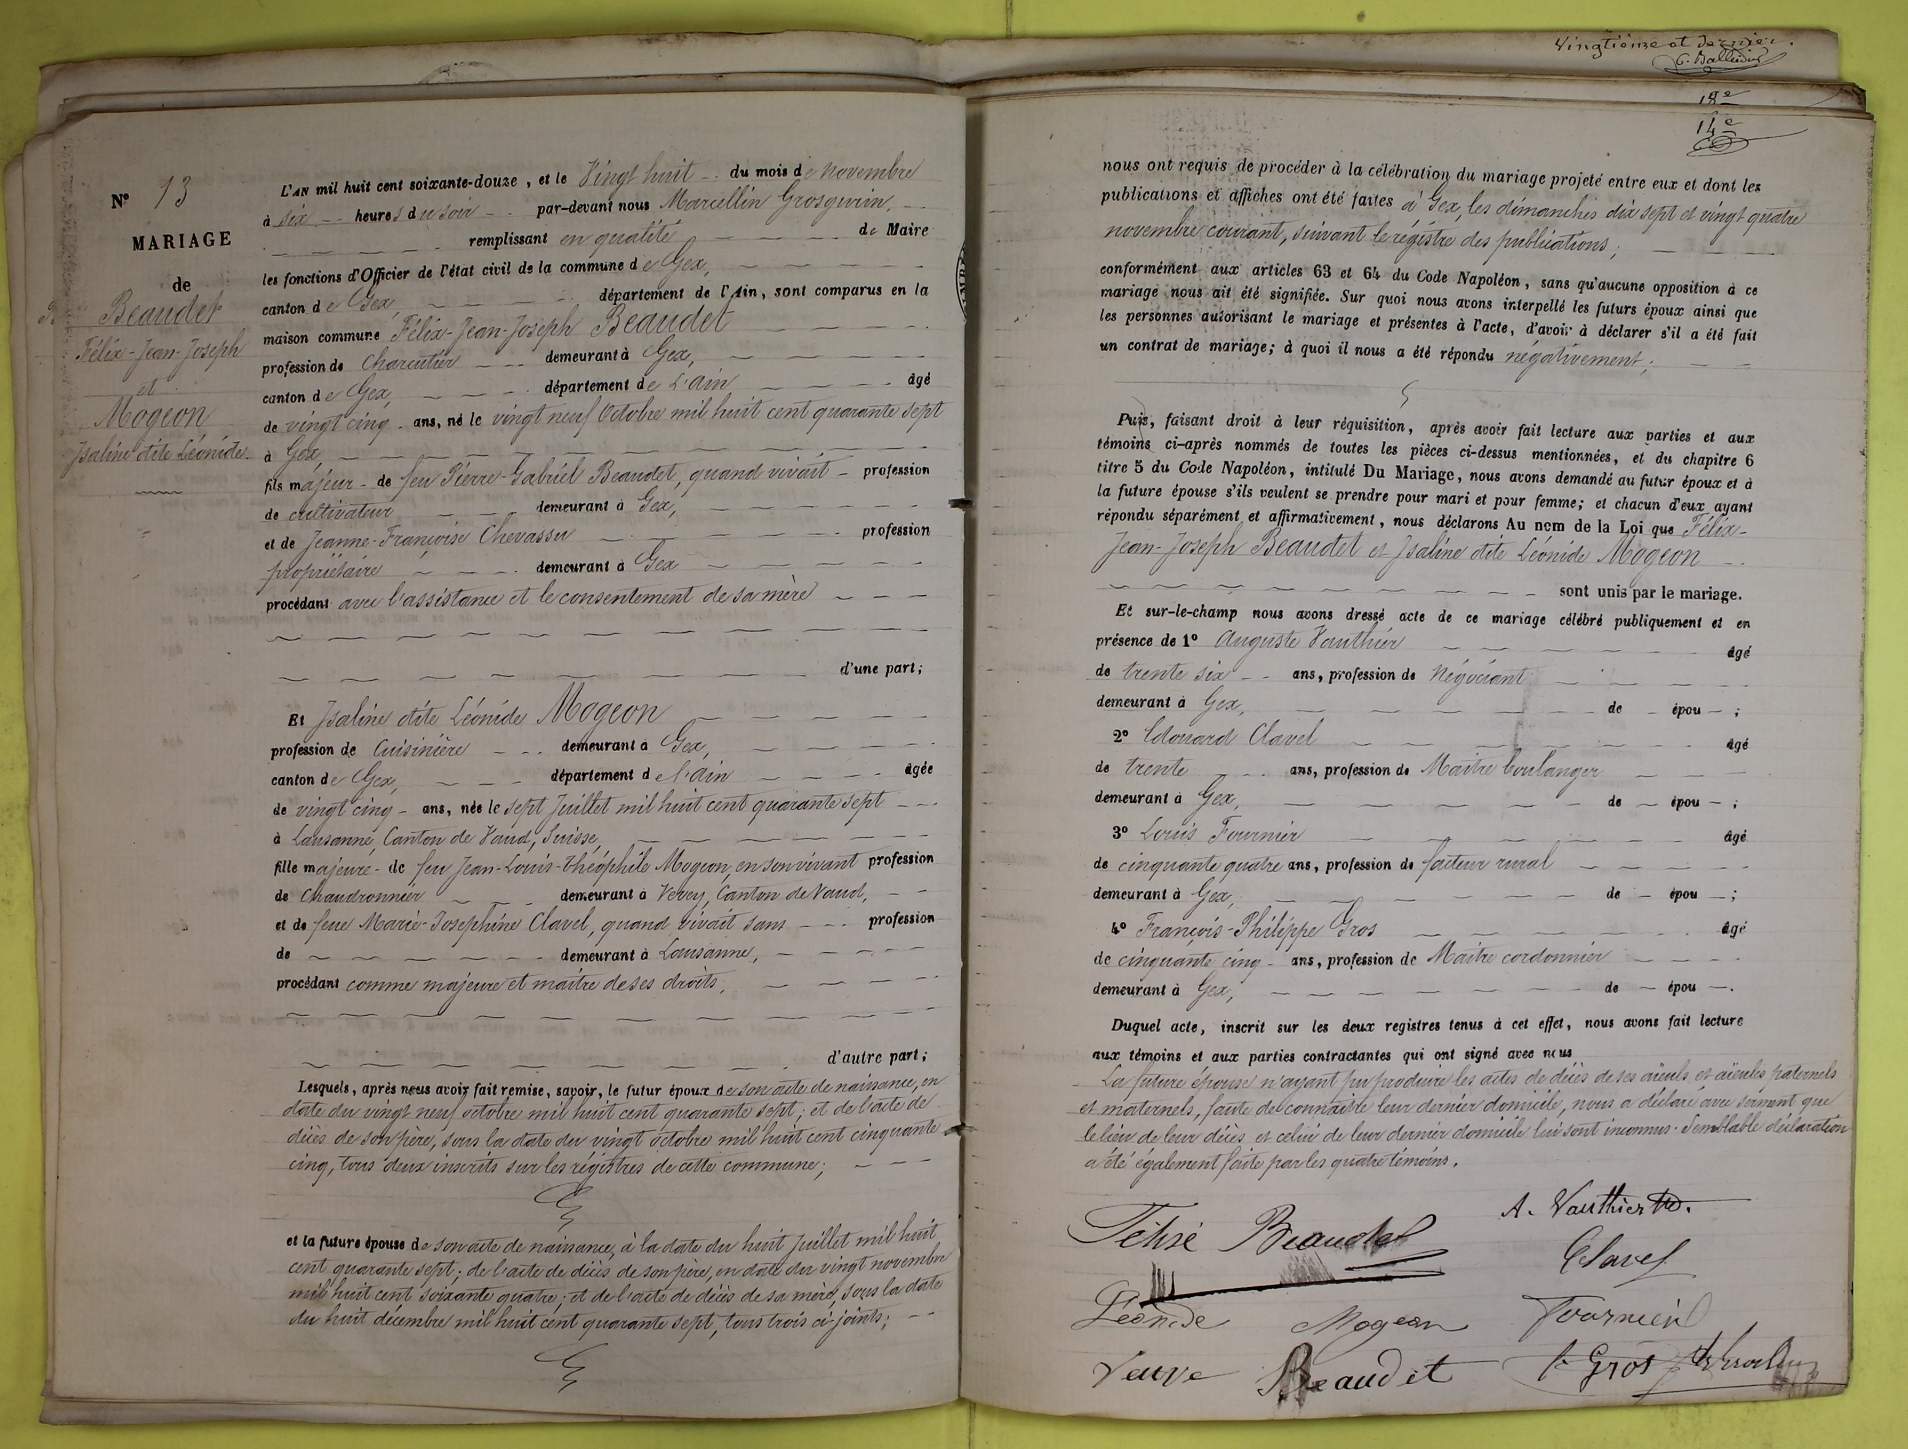 Vingtième et dernier.
N° 13
MARIAGE
de
Beaudet
Félix-Jean-Joseph
et
Mogeon
Isaline dite Léonide
L'AN mil huit cent soixante-douze, et le Vingt huit du mois de novembre
à six heures du soir par-devant nous Marcellin Grosgurin,
remplissant en qualité de Maire
les fonctions d'Officier de l'état civil de la commune de Gex,
canton de Gex, département de l'Ain, sont comparus en la
maison commune Félix-Jean-Joseph Beaudet
profession de Charcutier demeurant à Gex,
canton de Gex, département de L'Ain âgé
de vingt cinq ans, né le vingt neuf Octobre mil huit cent quarante sept
à Gex
fils majeur de feu Pierre-Gabriel Beaudet, quand vivait profession
de cultivateur demeurant à Gex,
et de Jeanne-Françoise Chevassu profession
propriétaire demeurant à Gex
procédant avec l'assistance et le consentement de sa mère
d'une part;
Et Isaline dite Léonide Mogeon
profession de Cuisinière demeurant à Gex,
canton de Gex, département de l'Ain âgée
de vingt cinq ans, née le sept Juillet mil huit cent quarante sept
à Lausanne, Canton de Vaud, Suisse,
fille majeure de feu Jean-Louis-Théophile Mogeon, en son vivant profession
de Chaudronnier demeurant à Vevey, Canton de Vaud,
et de feue Marie-Josephine Clavel, quand vivait sans profession
de demeurant à Lausanne,
procédant comme majeure et maître de ses droits,
d'autre part;
Lesquels, après nous avoir fait remise, savoir, le futur époux de son acte de naissance, en
date du vingt neuf octobre mil huit cent quarante sept; et de l'acte de
décès de son père, sous la date du vingt octobre mil huit cent cinquante
cinq, tous deux inscrits sur les régistres de cette commune;
et la future épouse de son acte de naissance, à la date du huit Juillet mil huit
cent quarante sept; de l'acte de décès de son père, en date du vingt novembre
mil huit cent soixante quatre; et de l'acte de décès de sa mère, sous la date
du huit décembre mil huit cent quarante sept, tous trois ci-joints;
18e
14e
nous ont requis de procéder à la célébration du mariage projeté entre eux et dont les
publications et affiches ont été faites à Gex, les dimanches dix sept et vingt quatre
novembre courant, suivant le régistre des publications;
conformément aux articles 63 et 64 du Code Napoléon, sans qu'aucune opposition à ce
mariage nous ait été signifiée. Sur quoi nous avons interpellé les futurs époux ainsi que
les personnes autorisant le mariage et présentes à l'acte, d'avoir à déclarer s'il a été fait
un contrat de mariage; à quoi il nous a été répondu négativement;
Puis, faisant droit à leur réquisition, après avoir fait lecture aux parties et aux
témoins ci-après nommés de toutes les pièces ci-dessus mentionnées, et du chapitre 6
titre 5 du Code Napoléon, intitulé Du Mariage, nous avons demandé au futur époux et à
la future épouse s'ils veulent se prendre pour mari et pour femme; et chacun d'eux ayant
répondu séparément et affirmativement, nous déclarons Au nom de la Loi que Félix-
Jean-Joseph Beaudet et Isaline dite Léonide Mogeon
sont unis par le mariage.
Et sur-le-champ nous avons dressé acte de ce mariage célébré publiquement et en
présence de 1° Auguste Vauthier âgé
de trente six ans, profession de Négociant
demeurant à Gex, de épou ;
2° Edouard Clavel âgé
de trente ans, profession de Maître boulanger
demeurant à Gex, de épou ;
3° Louis Fournier âgé
de cinquante quatre ans, profession de facteur rural
demeurant à Gex, de épou ;
4° François-Philippe Gros âgé
de cinquante cinq ans, profession de Maître cordonnier
demeurant à Gex, de épou .
Duquel acte, inscrit sur les deux registres tenus à cet effet, nous avons fait lecture
aux témoins et aux parties contractantes qui ont signé avec nous
La future épouse n'ayant pu produire les actes de décès de ses aïeuls et aïeules paternels
et maternels, faute de connaitre leur dernier domicile, nous a déclaré avec serment que
le lieu de leur décès et celui de leur dernier domicile lui sont inconnus. Semblable déclaration
a été également faite par les quatre témoins.
Félix Beaudet
A. Vauthier
Clavel
Léonide Mogeon
Fournier
Veuve Beaudet
Gros